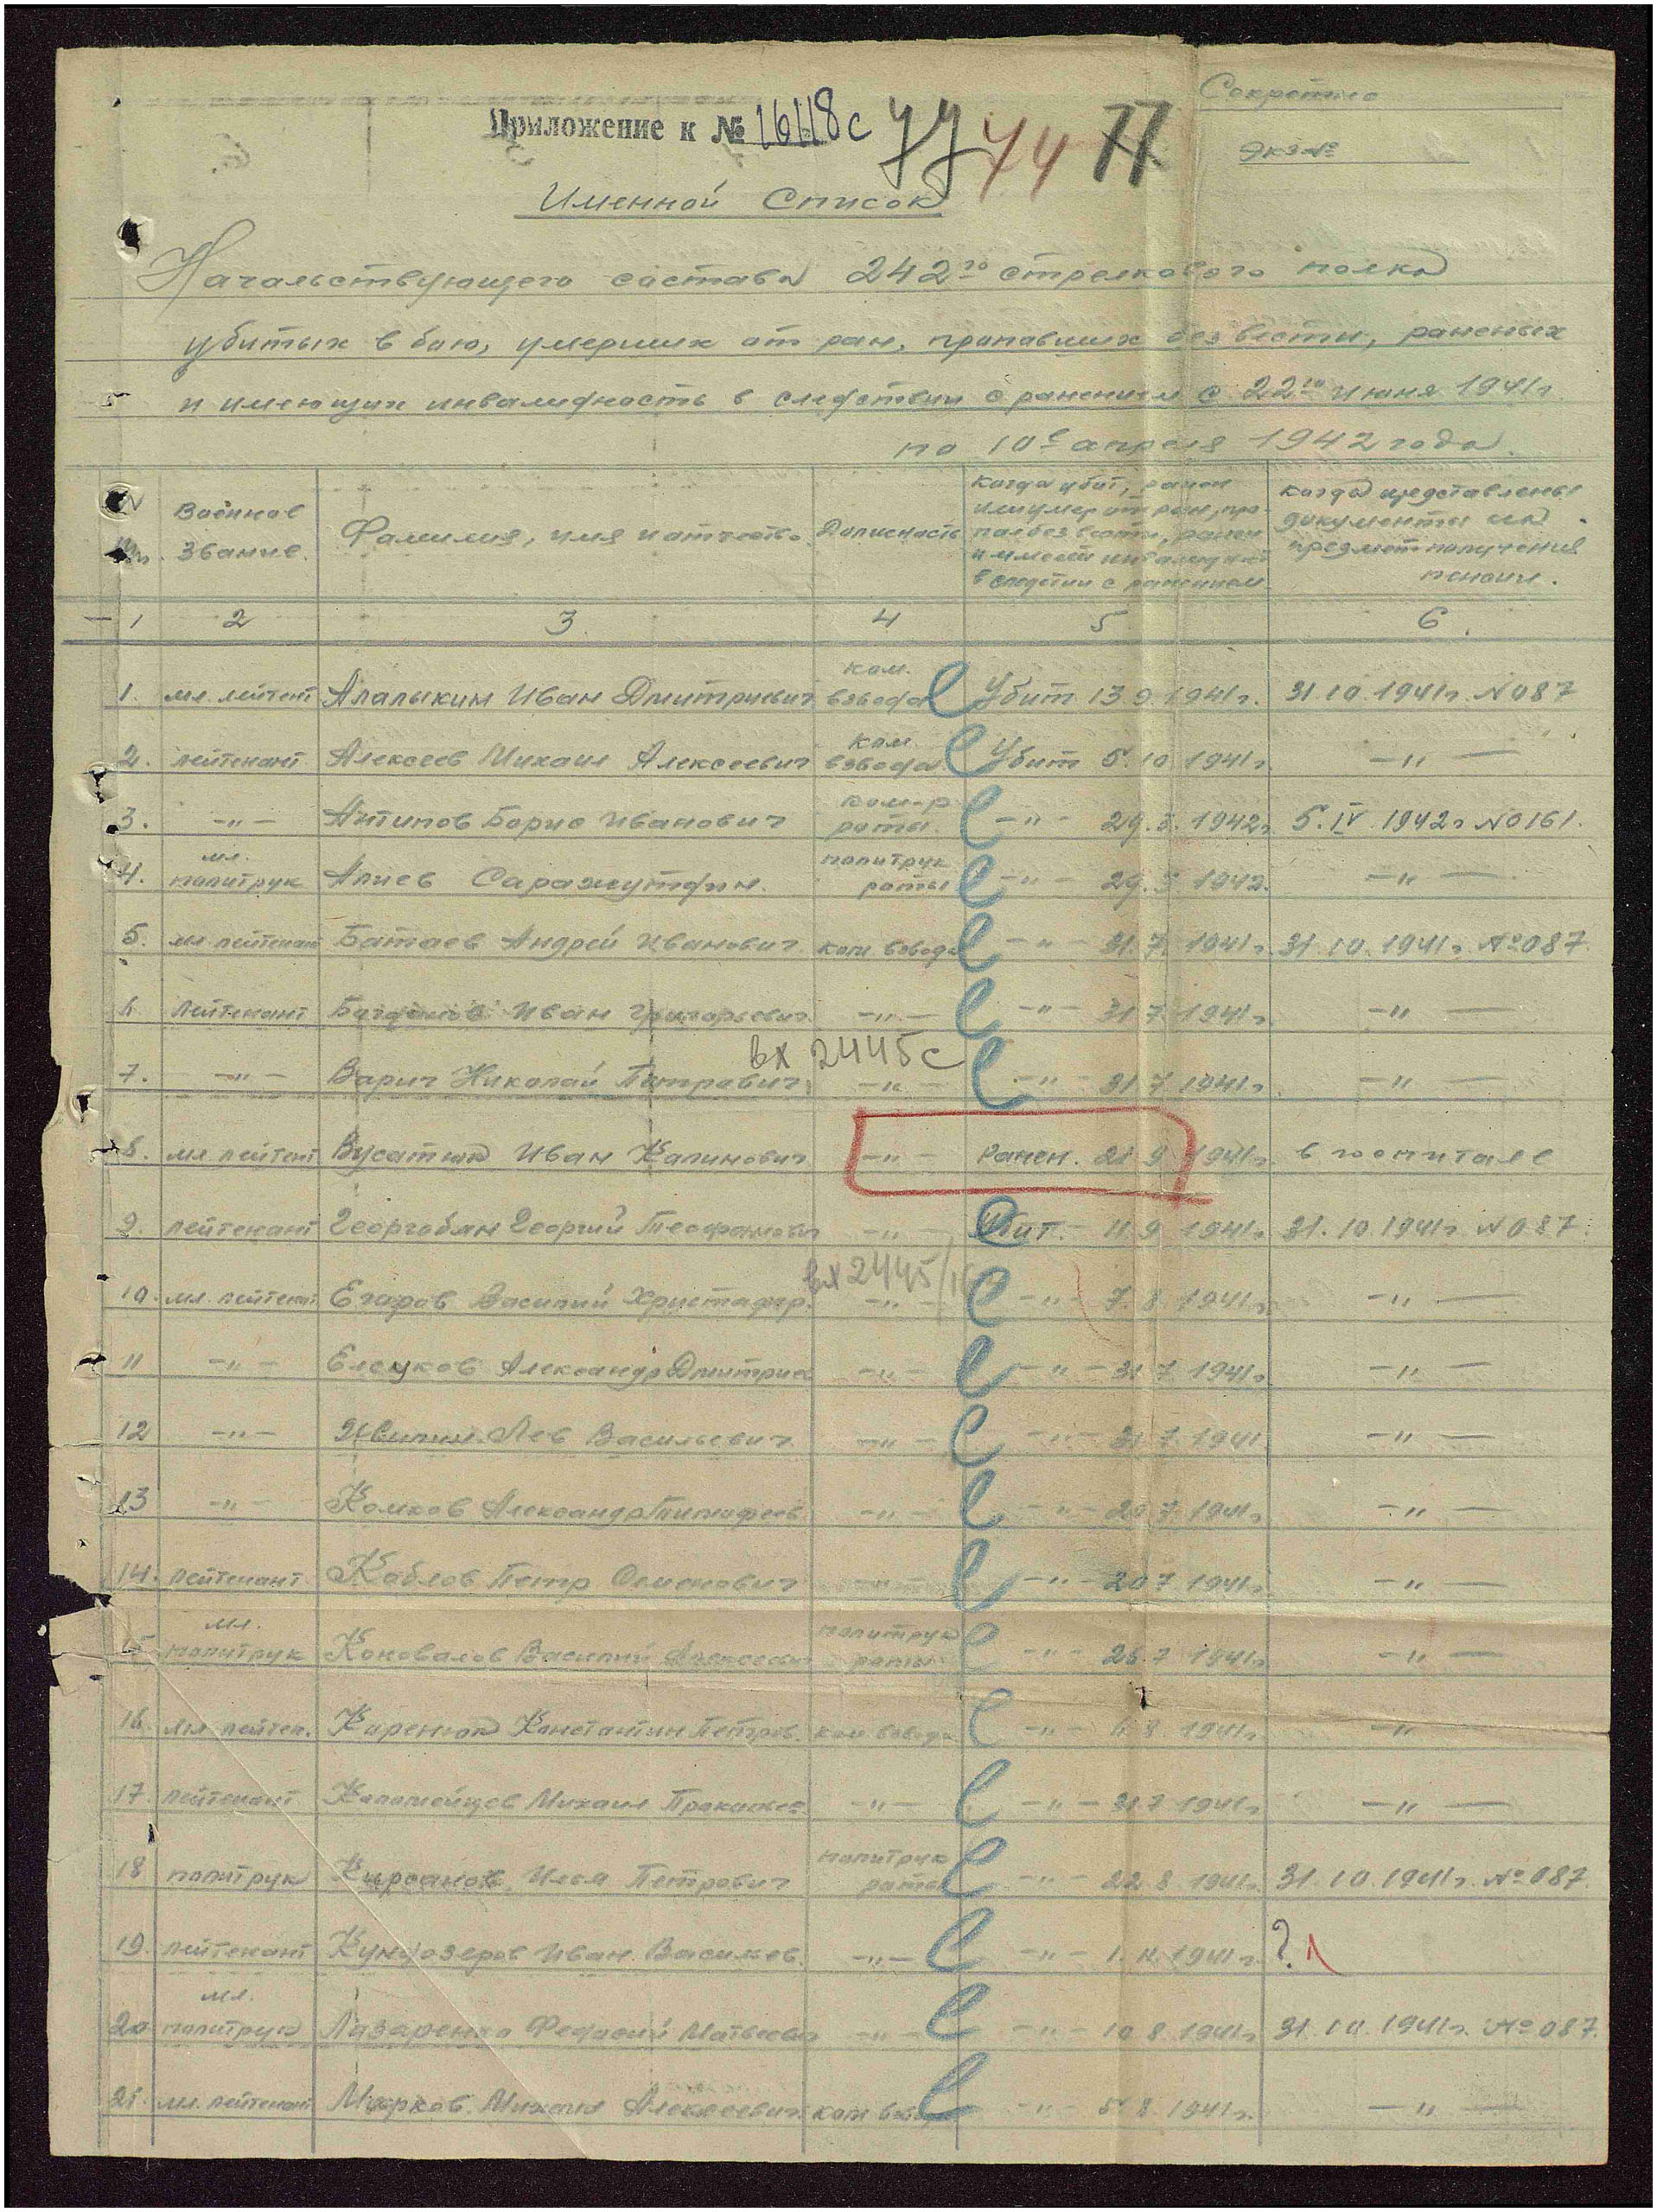 Секретно
Приложение к № 16118с 77 74 77
Экз №
Именной Список
Начальствующего состава 242го стрелкового полка
убитых в бою, умерших от ран, пропавших без вести, раненых
и имеющих инвалидность в следствии с ранением с 22го июня 1941г.
по 10е апреля 1942 года.
Военное звание. Фамилия, имя и отчество. Должность
когда убит, ранен
пал без вести, ранен
в следствии с ранением
когда представлены
документы на
предмет получения
пенсии.
1 2 3 4 5 6.
1. мл. лейтент Алалыкин Иван Дмитриевич ком. взвода Убит 13.9.1941г. 31.10.1941г. №087
2. лейтенант Алексеев Михаил Алексеевич ком. взвода Убит 5.10.1941г. -"-
3. -"- Антипов Борис Иванович ком-р роты. -"- 29.3.1942г. 5.IV.1942г №0161.
4. мл. политрук Алиев Саражутдин. политрук роты -"- 29.3.1942. -"-
5. мл. лейтенант Батаев Андрей Иванович. ком. взвода -"- 31.7.1941г. 31.10.1941г. №087.
6. лейтенант Богданов Иван Григорьевич -"- -"- 31.7.1941г. -"-
вх 2445с
7. -"- Варич Николай Петрович -"- -"- 31.7.1941г. -"-
8. мл. лейтент Вусатюк Иван Калинович -"- Ранен. 21.9.1941г. в госпитале
9. лейтенант Георгобан Георгий Теофанович -"- Убит. - 11.9.1941г. 31.10.1941г №087.
вх 2445/
10. мл. лейтенат Егоров Василий Христофор. -"- -"- 7.8.1941г. -"-
11 -"- Елецков Александр Дмитриев -"- -"- 31.7.1941г. -"-
12 -"- Лев Васильевич -"- -"- 31.7.1941 -"-
13 -"- Комков Александр Тимофеев -"- -"- 20.7.1941г. -"-
14. лейтенант Коблов Петр Семенович -"- -"- 20.7.1941г. -"-
15 мл. политрук Коновалов Василий Алексеевич политрук роты -"- 26.7.1941г. -"-
16. мл. лейтен. Каренюк Константин Петров. ком. взвода -"- 6.8.1941г. -"-
17. лейтенант Коломейцев Михаил Прокофьев -"- -"- 31.7.1941г. -"-
18 политрук Кирсанов Илья Петрович политрук роты -"- 22.8.1941г. 31.10.1941г. №087.
19. лейтенант Кундозеров Иван Васильев. -"- -"- 1.11.1941г. ?
20 мл. политрук Лазаренко Федосий Матвеевич -"- -"- 10.8.1941г. 31.10.1941г. №087.
21. мл. лейтенант Марков Михаил Алексеевич ком взвода -"- 5.8.1941г. -"-